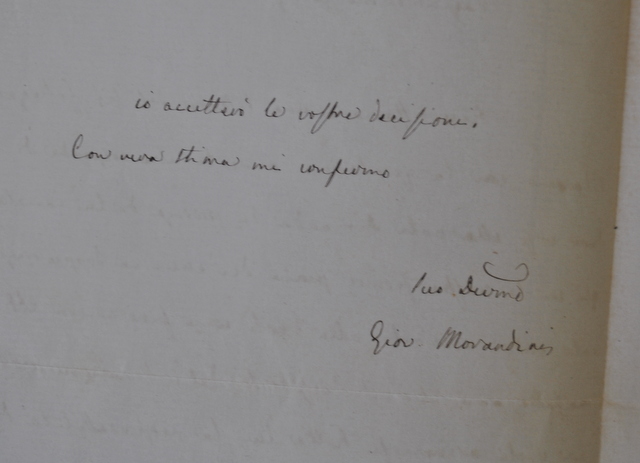 io accetterò le vostre decisioni.
Con vera stima mi confermo
Suo Devmo
Giov. Morandini